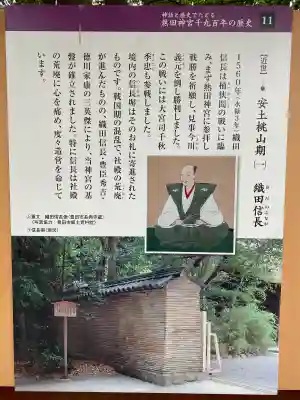 神話と歴史でたどる
熱田神宮千九百年の歴史
11
【近世】
安土桃山期(一)
織田信長
おだのぶなが
1560年(永禄3年)織田
信長は桶狭間の戦いに臨
み、まず熱田神宮に参拝し
戦勝を祈願し、見事今川
義元を倒し勝利しました。
この戦いには大宮司千秋
季忠も参戦しました。
境内の信長塀はそのお礼に寄進された
ものです。戦国期の混乱で、社殿の荒廃
が進んだものの、織田信長・豊臣秀吉・
徳川家康の三英傑により、当神宮の基
盤が確立されました。特に信長は社殿
の荒廃に心を痛め、度々造営を命じて